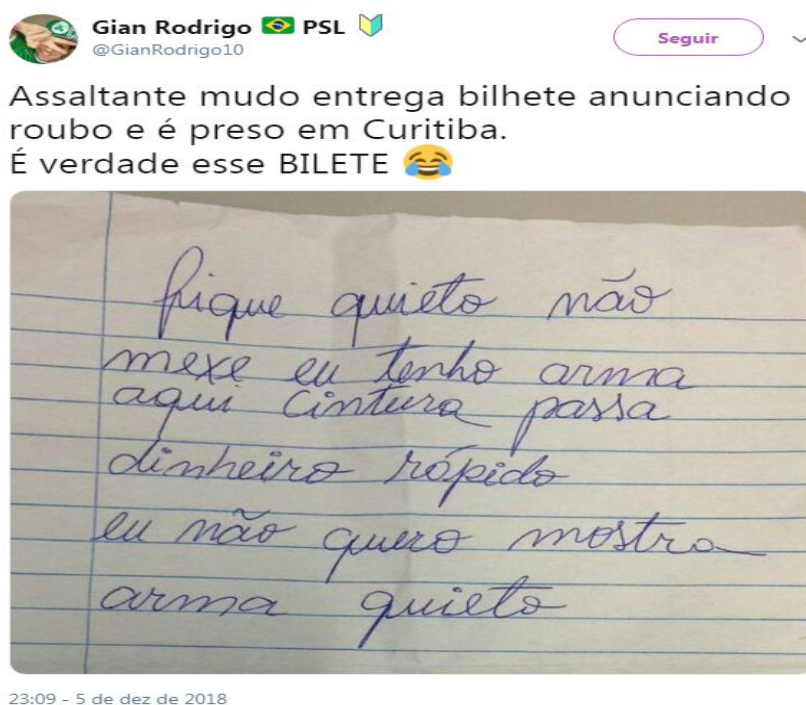 Gian Rodrigo 🇧🇷 PSL 🔰
@GianRodrigo10
Seguir
Assaltante mudo entrega bilhete anunciando
roubo e é preso em Curitiba.
É verdade esse BILETE 😂
fique quieto não
mexe eu tenho arma
aqui cintura passa
dinheiro rápido
eu não quero mostra
arma quieto
23:09 - 5 de dez de 2018